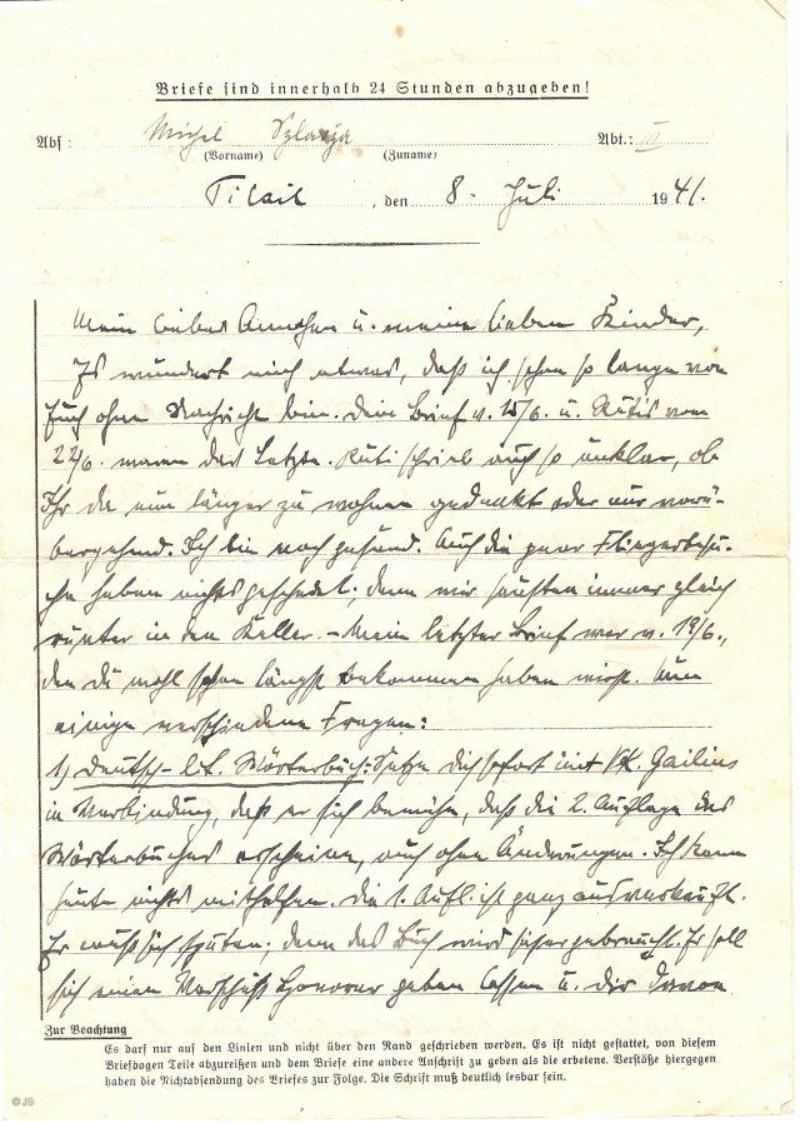 Briefe sind innerhalb 24 Stunden abzugeben!
Abs: Michel Abt.: III
(Vorname) (Zuname)
Tilsit, den 8. Juli 1941.
Mein liebes Annchen u. meine lieben Kinder,
Es wundert mich etwas, daß ich schon so lange von
Euch ohne Nachricht bin. Dein Brief v. 15/6. u. Rutis vom
22/6. waren das Letzte. Ruti schrieb auch so unklar, ob
Ihr da nun länger zu wohnen gedenkt oder nur vorü-
bergehend. Ich bin noch gesund. Auch die paar Fliegerbesu-
che haben nichts geschadet; denn wir sausten immer gleich
runter in den Keller. – Mein letzter Brief war v. 19/6.,
den Du wohl schon längst bekommen haben wirst. Nun
einige verschiedene Fragen:
1) Deutsch-lit. Wörterbuch: Setze Dich sofort mit Gailius
in Verbindung, daß er sich bemühe, daß die 2. Auflage des
Wörterbuches erscheine, auch ohne Änderungen. Ich kann
heute nichts mithelfen. Die 1. Aufl. ist ganz ausverkauft.
Er muß sich sputen; denn das Buch wird sicher gebraucht. Er soll
sich einen Vorschuß Honorar geben lassen u. Dir davon
Zur Beachtung
Es darf nur auf den Linien und nicht über den Rand geschrieben werden. Es ist nicht gestattet, von diesem
Briefbogen Teile abzureißen und dem Briefe eine andere Anschrift zu geben als die erbetene. Verstöße hiergegen
haben die Nichtabsendung des Briefes zur Folge. Die Schrift muß deutlich lesbar sein.
©JS